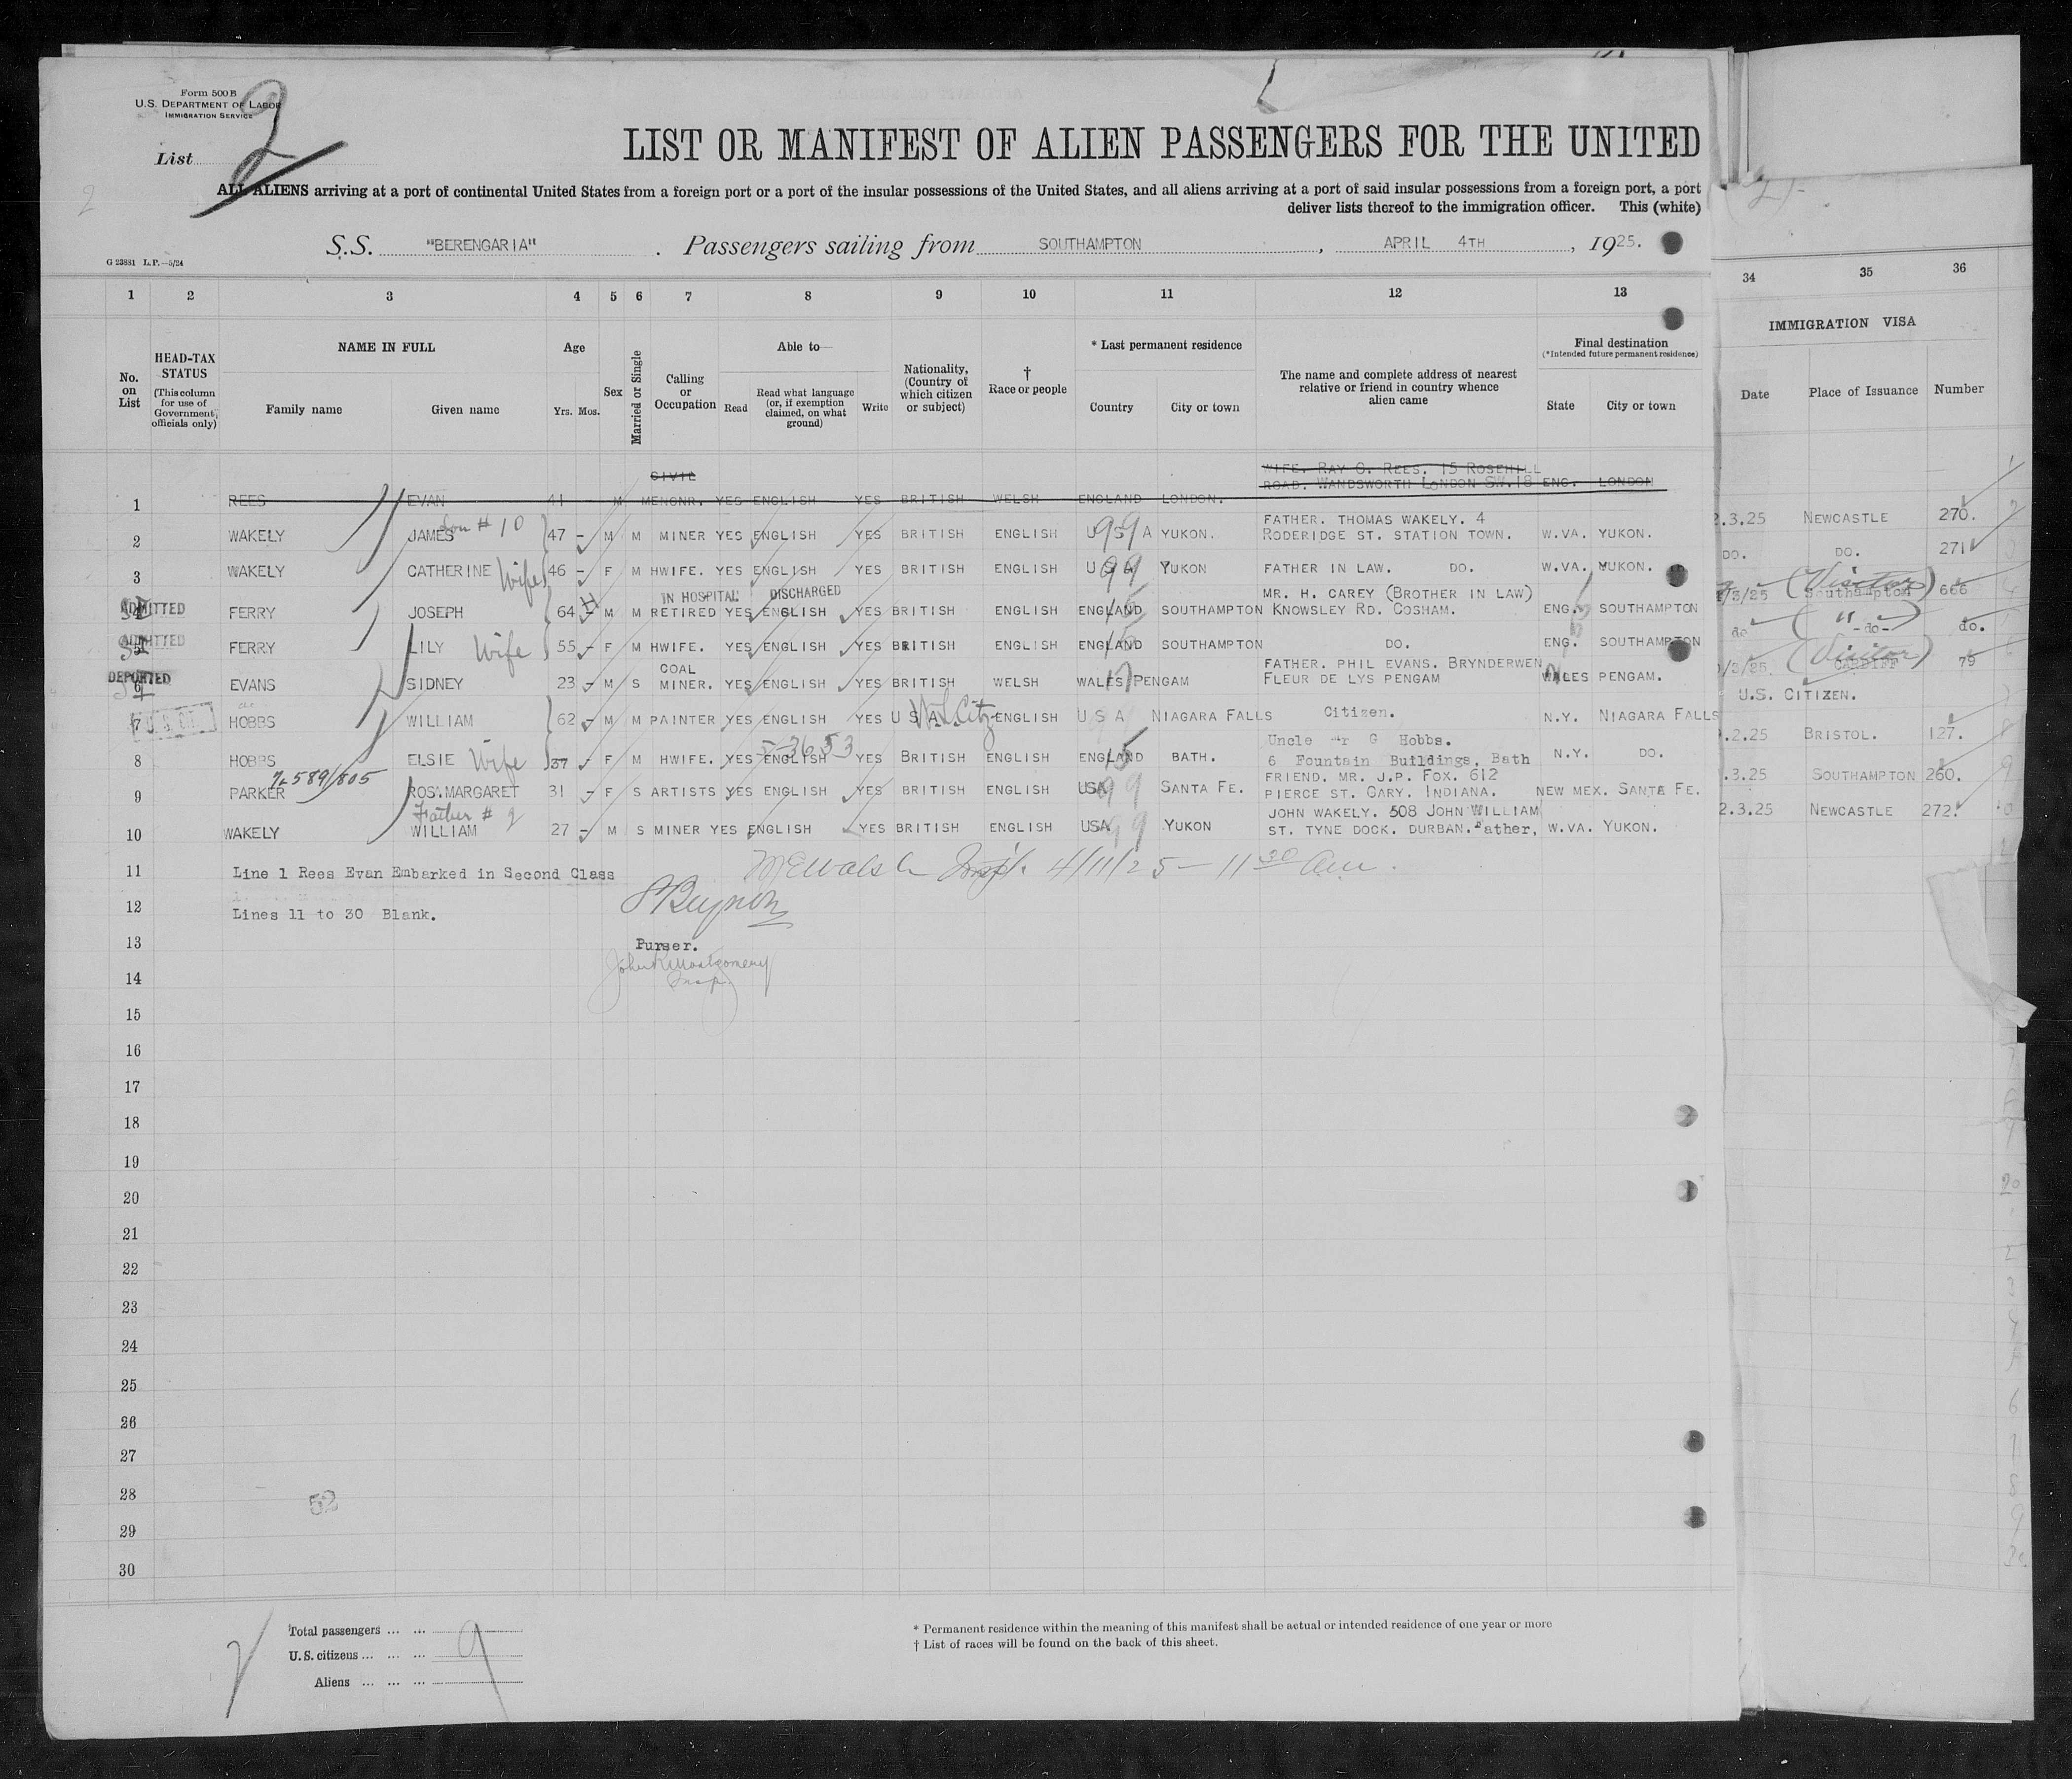 Form 500 B
U.S. DEPARTMENT OF LABOR
IMMIGRATION SERVICE
List 2
LIST OR MANIFEST OF ALIEN PASSENGERS FOR THE UNITED
ALL ALIENS arriving at a port of continental United States from a foreign port or a port of the insular possessions of the United States, and all aliens arriving at a port of said insular possessions from a foreign port, a port
deliver lists thereof to the immigration officer. This (white)
S.S. "BERENGARIA" . Passengers sailing from SOUTHAMPTON , APRIL 4TH , 1925.
G 23881 L.P.—5/24
1 2 3 4 5 6 7 8 9 10 11 12 13 34 35 36
No. on List
HEAD-TAX STATUS (This column for use of Government officials only)
NAME IN FULL Family name Given name
Age Yrs. Mos.
Sex
Married or Single
Calling or Occupation
Able to— Read Read what language (or, if exemption claimed, on what ground) Write
Nationality, (Country of which citizen or subject)
† Race or people
* Last permanent residence Country City or town
The name and complete address of nearest relative or friend in country whence alien came
Final destination (*Intended future permanent residence) State City or town
IMMIGRATION VISA Date Place of Issuance Number
CIVIC WIFE. RAY G. REES, 15 ROSEHILL
1 REES EVAN 41 M MENGNR. YES ENGLISH YES BRITISH WELSH ENGLAND LONDON. ROAD. WANDSWORTH LONDON SW.18 ENG. LONDON
Son # 10 FATHER. THOMAS WAKELY. 4
2 WAKELY JAMES 47 M M MINER YES ENGLISH YES BRITISH ENGLISH USA 99 YUKON. RODERIDGE ST. STATION TOWN. W.VA. YUKON. 2.3.25 NEWCASTLE 270.
3 WAKELY CATHERINE Wife 46 F M HWIFE. YES ENGLISH YES BRITISH ENGLISH USA 99 YUKON FATHER IN LAW. DO. W.VA. YUKON. DO. DO. 271
IN HOSPITAL DISCHARGED MR. H. CAREY (BROTHER IN LAW) (Visitor)
ADMITTED 4 FERRY JOSEPH 64 M M RETIRED YES ENGLISH YES BRITISH ENGLISH ENGLAND SOUTHAMPTON KNOWSLEY RD. COSHAM. ENG. SOUTHAMPTON /3/25 Southampton 666
ADMITTED 5 FERRY LILY Wife 55 F M HWIFE. YES ENGLISH YES BRITISH ENGLISH ENGLAND SOUTHAMPTON DO. ENG. SOUTHAMPTON do ( " -do- ) do.
COAL FATHER. PHIL EVANS. BRYNDERWEN (Visitor)
DEPORTED 6 EVANS SIDNEY 23 M S MINER. YES ENGLISH YES BRITISH WELSH WALES PENGAM FLEUR DE LYS PENGAM WALES PENGAM. /3/25. CARDIFF 79
7 U.S. CIT. HOBBS WILLIAM 62 M M PAINTER YES ENGLISH YES U S A U.S. Citz ENGLISH U S A NIAGARA FALLS Citizen. N.Y. NIAGARA FALLS U.S. CITIZEN.
5-3653 Uncle Mr G Hobbs.
8 HOBBS ELSIE Wife 37 F M HWIFE. YES ENGLISH YES BRITISH ENGLISH ENGLAND 15 BATH. 6 Fountain Buildings, Bath N.Y. DO. .2.25 BRISTOL. 127.
589/805 FRIEND. MR. J.P. FOX. 612
9 PARKER ROS.MARGARET 31 F S ARTISTS YES ENGLISH YES BRITISH ENGLISH USA 99 SANTA FE. PIERCE ST. GARY. INDIANA. NEW MEX. SANTA FE. .3.25 SOUTHAMPTON 260.
Father # 2 JOHN WAKELY. 508 JOHN WILLIAM
10 WAKELY WILLIAM 27 M S MINER YES ENGLISH YES BRITISH ENGLISH USA 99 YUKON ST. TYNE DOCK. DURBAN. Father, W.VA. YUKON. 2.3.25 NEWCASTLE 272.
11 Line 1 Rees Evan Embarked in Second Class Insp. 4/11/25 — 11 30 Am.
12 Lines 11 to 30 Blank.
13 Purser.
John R Montgomery
14 Insp.
15
16
17
18
19
20
21
22
23
24
25
26
27
28 52
29
30
Total passengers ... ... 9
U.S. citizens ... ... ...
Aliens ... ... ...
* Permanent residence within the meaning of this manifest shall be actual or intended residence of one year or more
† List of races will be found on the back of this sheet.